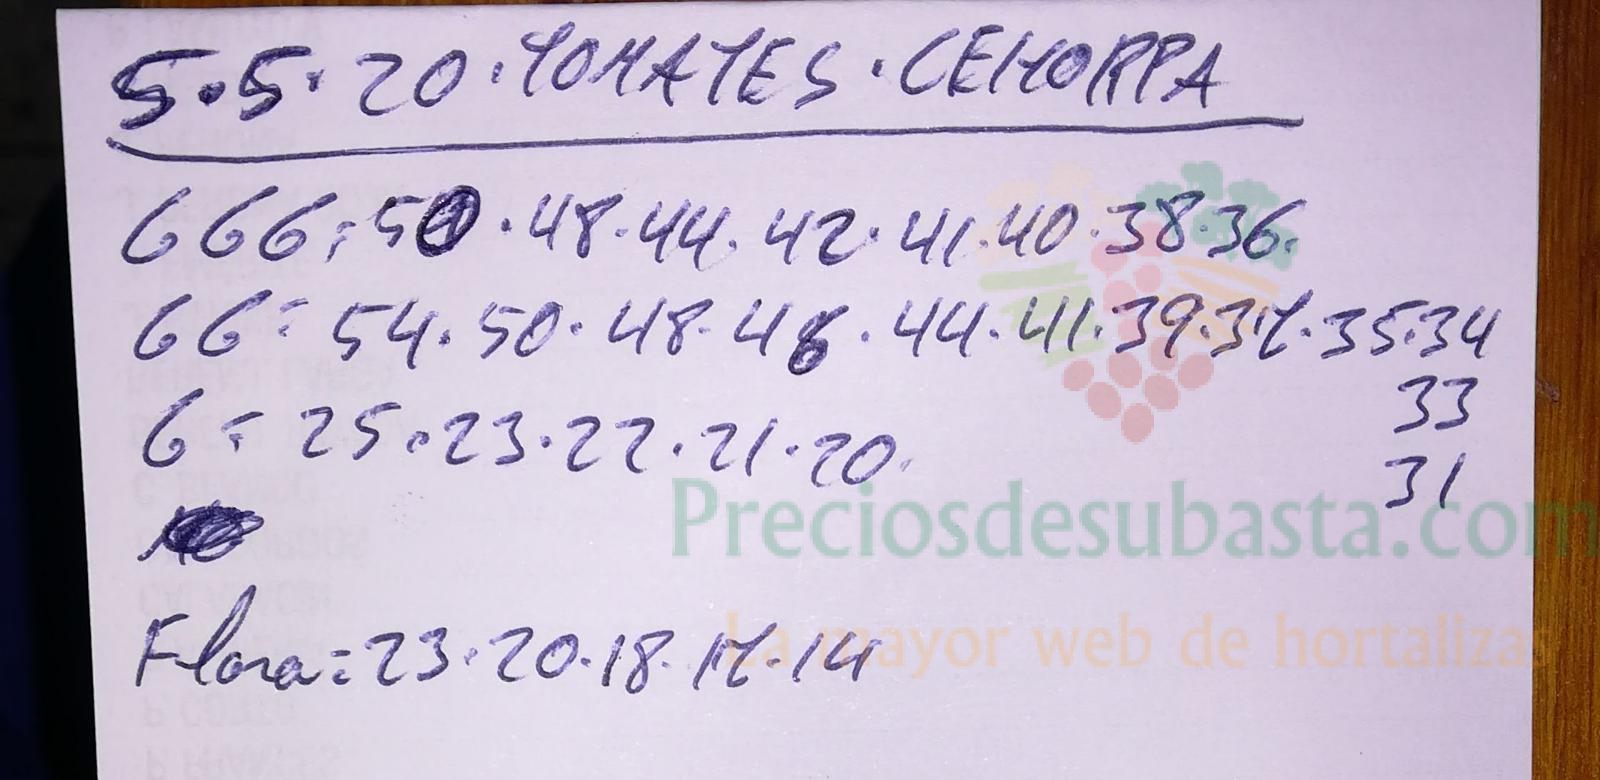 5.5.20.TOMATES.CEHORPA
GGG=50.48.44.42.41.40.38.36.
GG=54.50.48.46.44.41.39.37.35.34
33
31
G=25.23.22.21.20.
Preciosdesubasta.com
La mayor web de hortalizas
Flora=23.20.18.17.14